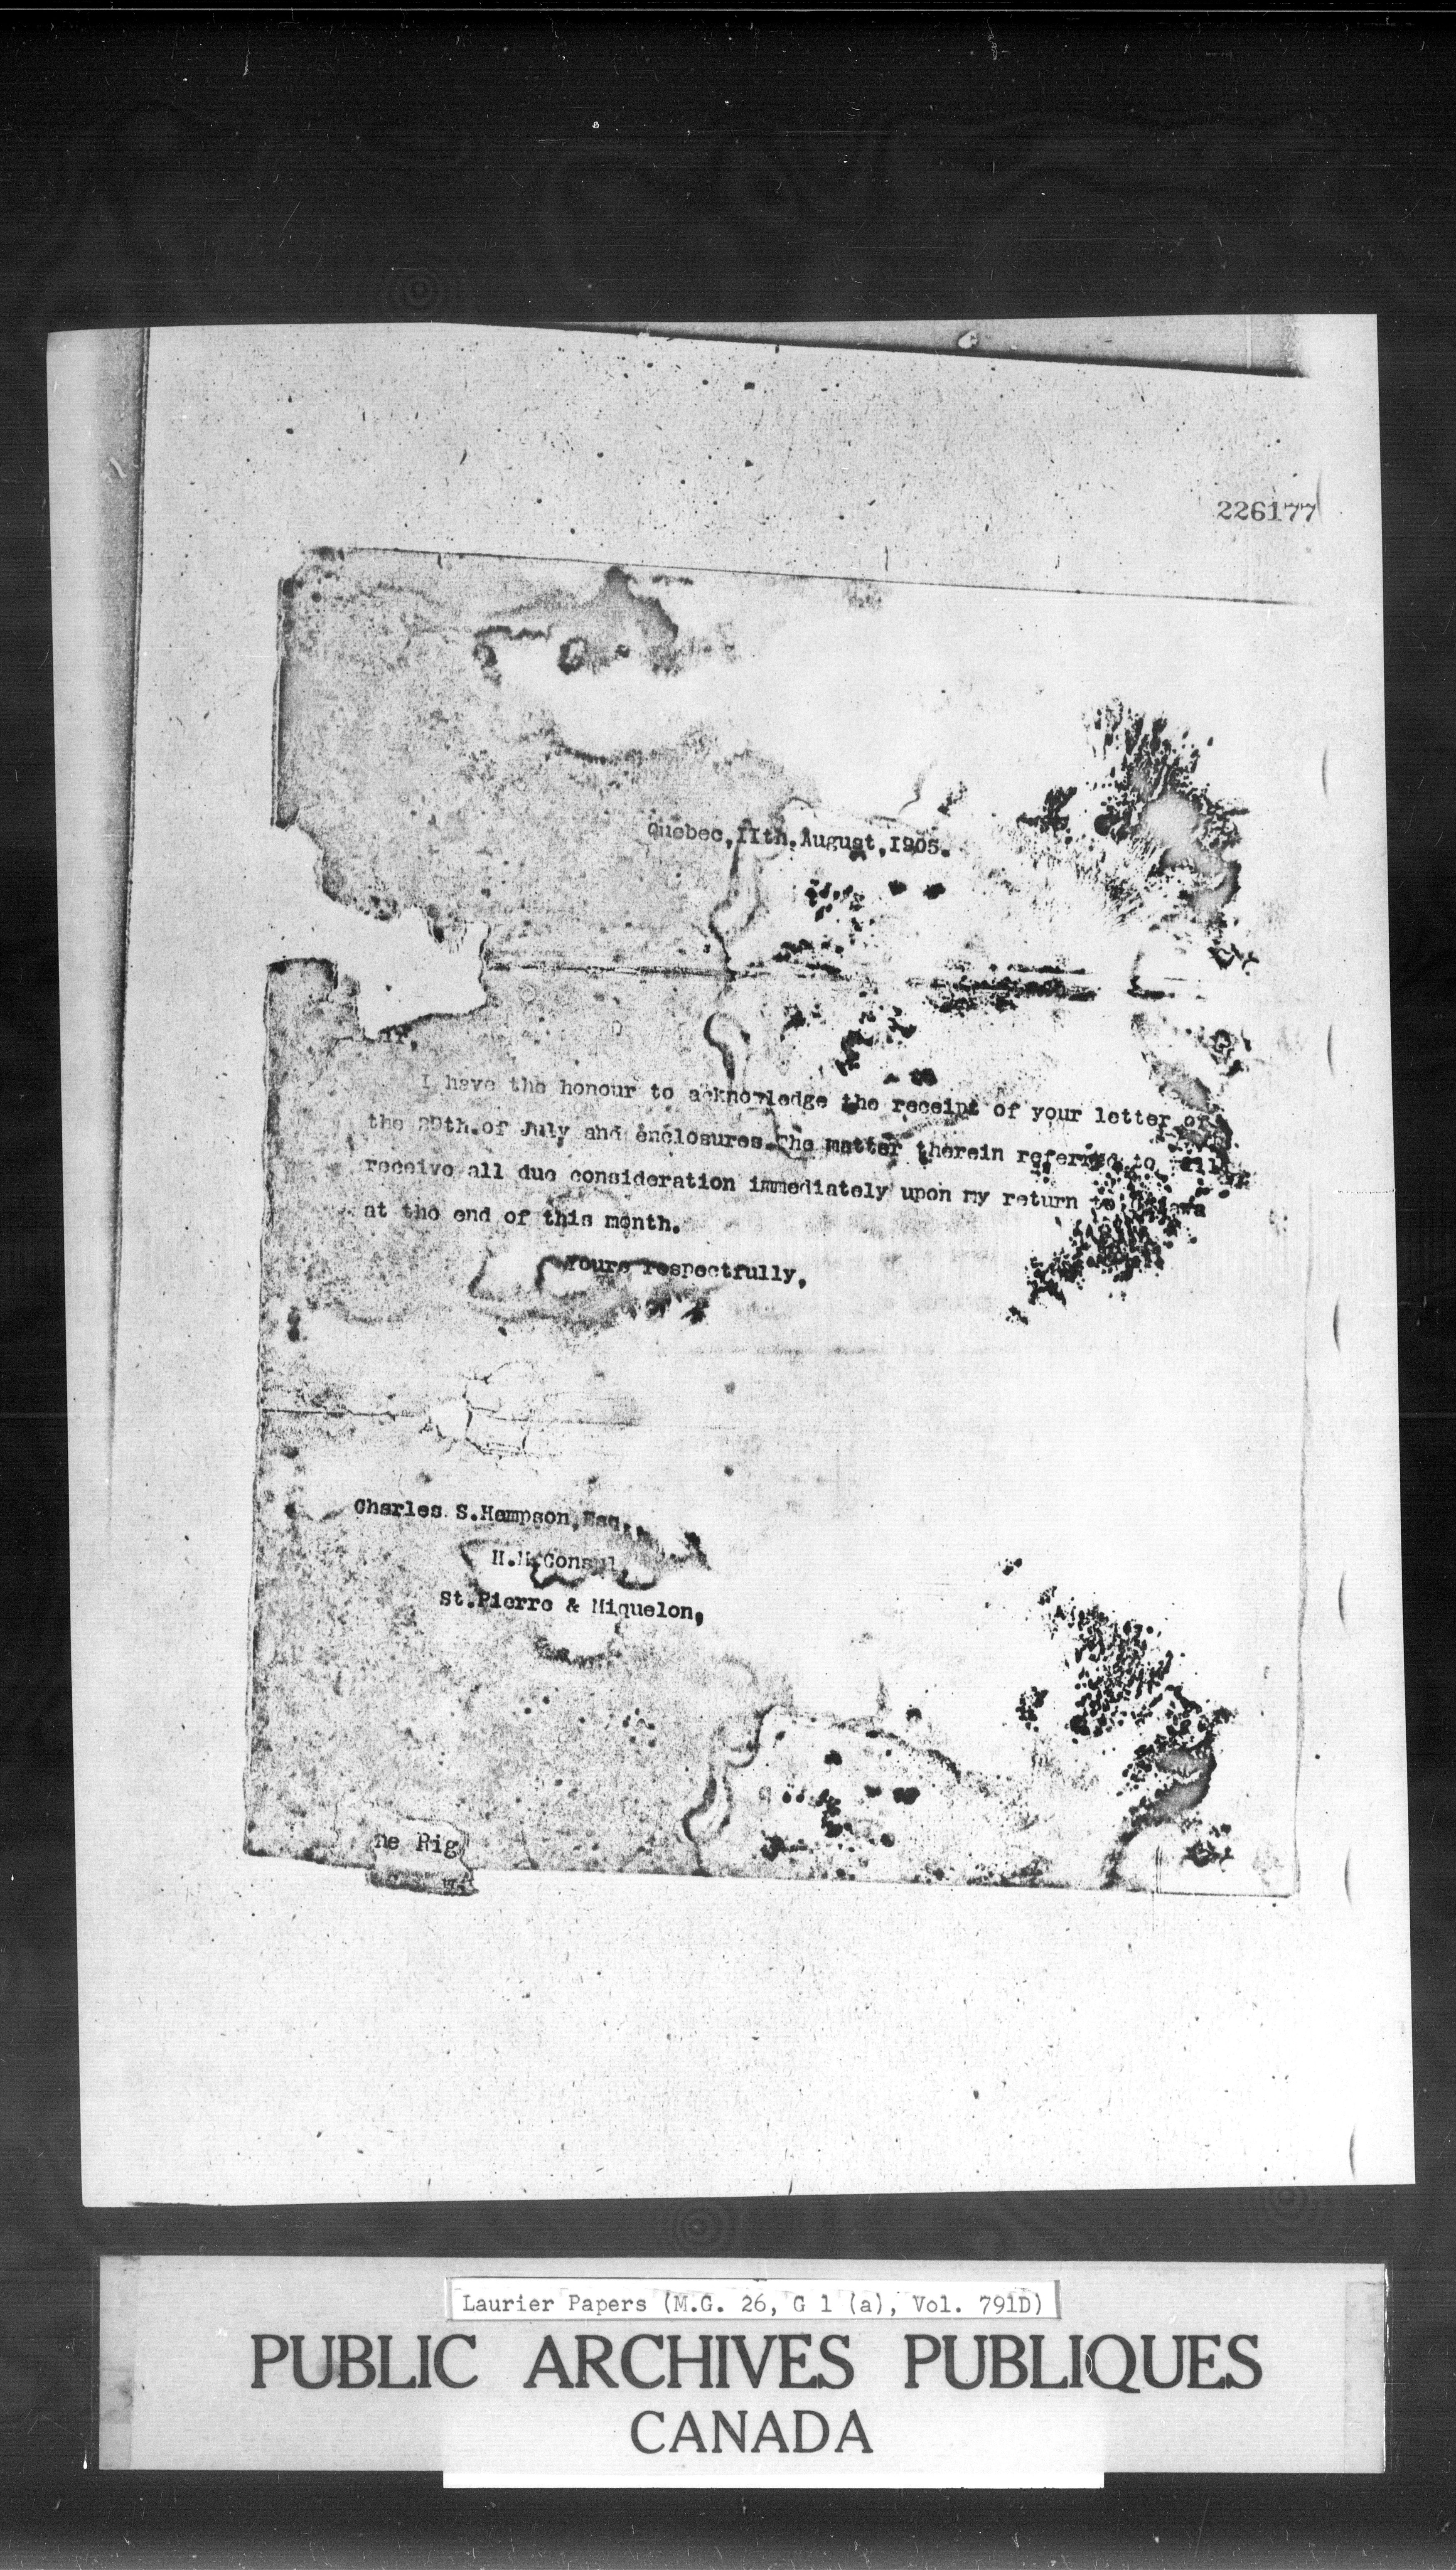 226177
Quebec, IIth. August, I905.
ir,
I have the honour to acknowledge the receipt of your letter of
the 29th. of July and enclosures. The matter therein referred to will
receive all due consideration immediately upon my return to Ottawa
at the end of this month.
Yours respectfully,
Charles S. Hampson, Esq.,
H.M. Consul
St. Pierre & Miquelon,
he Rig
Laurier Papers (M.G. 26, G 1 (a), Vol. 791D)
PUBLIC ARCHIVES PUBLIQUES
CANADA